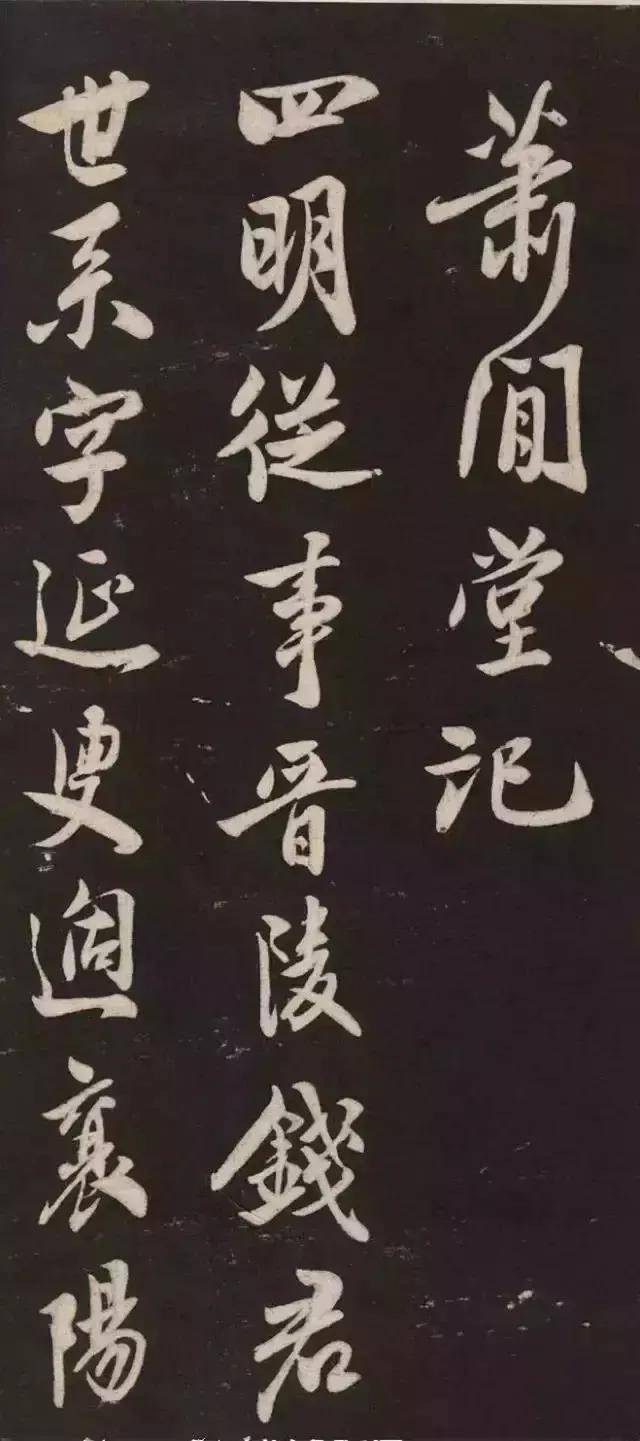 蕭閒堂記
四明從事晉陵錢君
世系字延叟過襄陽